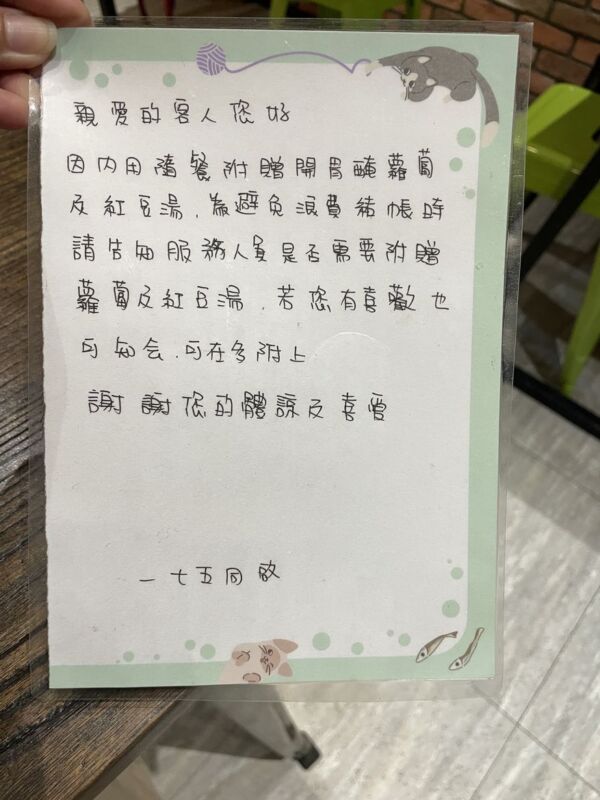 親愛的客人您好
因內用隨餐附贈開胃醃蘿蔔
及紅豆湯、為避免浪費結帳時
請告知服務人員是否需要附贈
蘿蔔及紅豆湯、若您有喜歡也
可知会、可在多附上
謝謝您的體諒及喜愛
一七五同啟